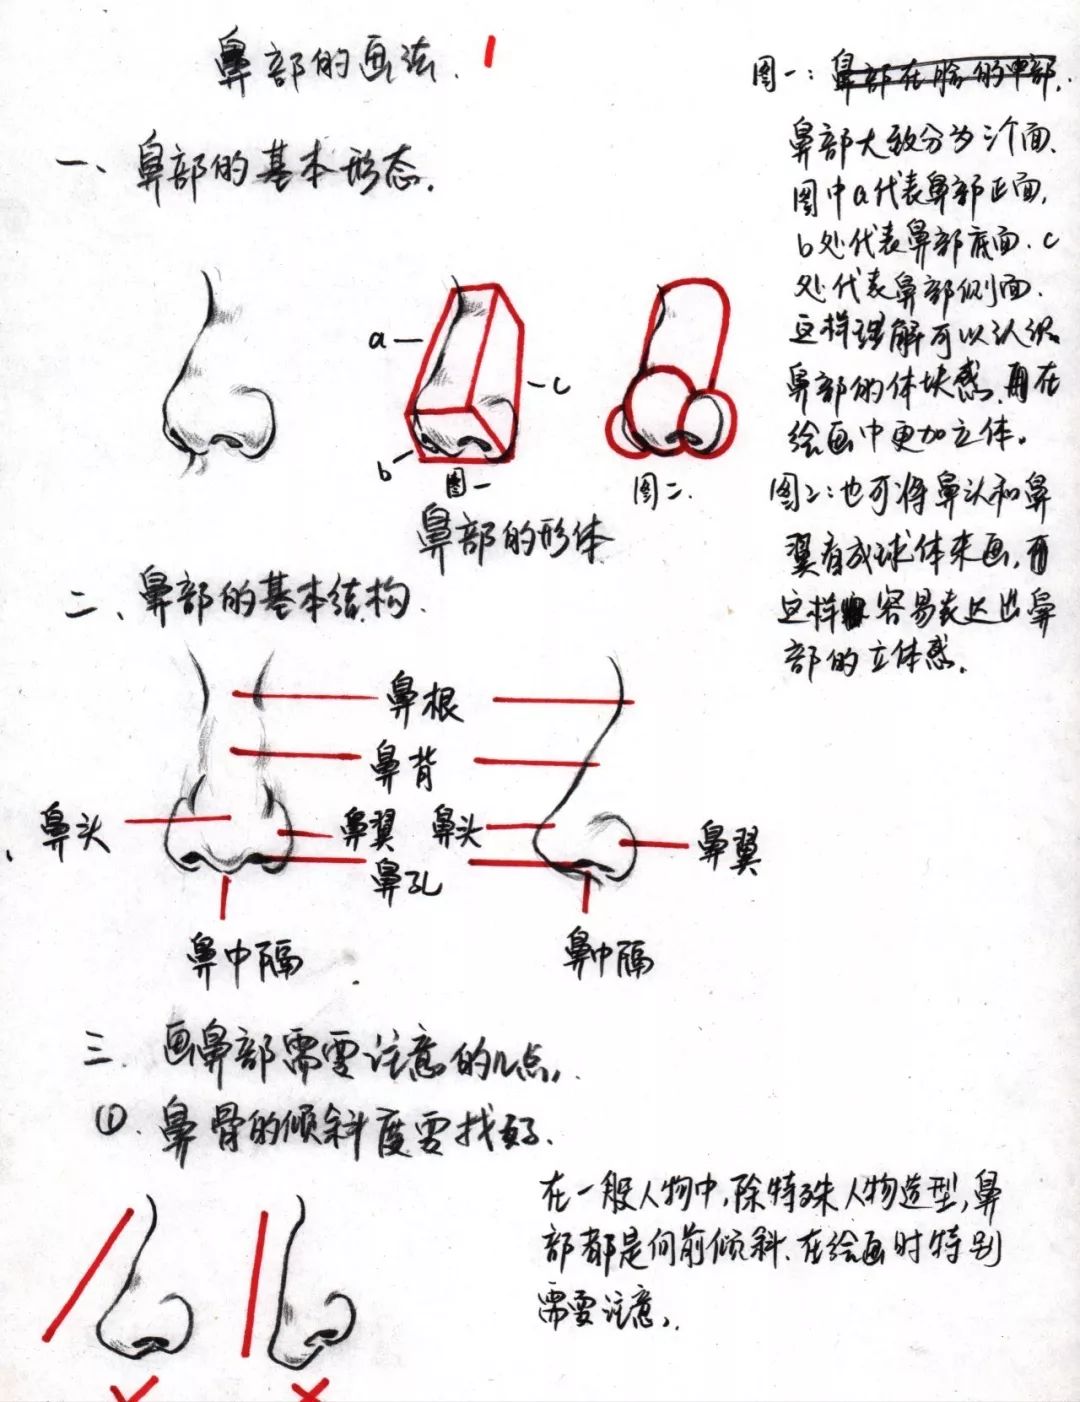 鼻部的画法. 1
一、鼻部的基本形态.
a
c
b
图一
图二.
鼻部的形体
图一: 鼻部在脸的中部.
鼻部大致分为三个面.
图中a代表鼻部正面,
b处代表鼻部底面. c
处代表鼻部侧面.
这样理解可以认识
鼻部的体块感.再在
绘画中更加立体。
图二:也可将鼻头和鼻
翼看成球体来画,而
这样 容易表达出鼻
部的立体感.
二、鼻部的基本结构.
鼻根
鼻背
鼻头
鼻翼
鼻头
鼻翼
鼻孔
鼻中隔
鼻中隔
三. 画鼻部需要注意的几点,.
①. 鼻骨的倾斜度要找好.
在一般人物中,除特殊人物造型,鼻
部都是向前倾斜.在绘画时特别
需要注意,.